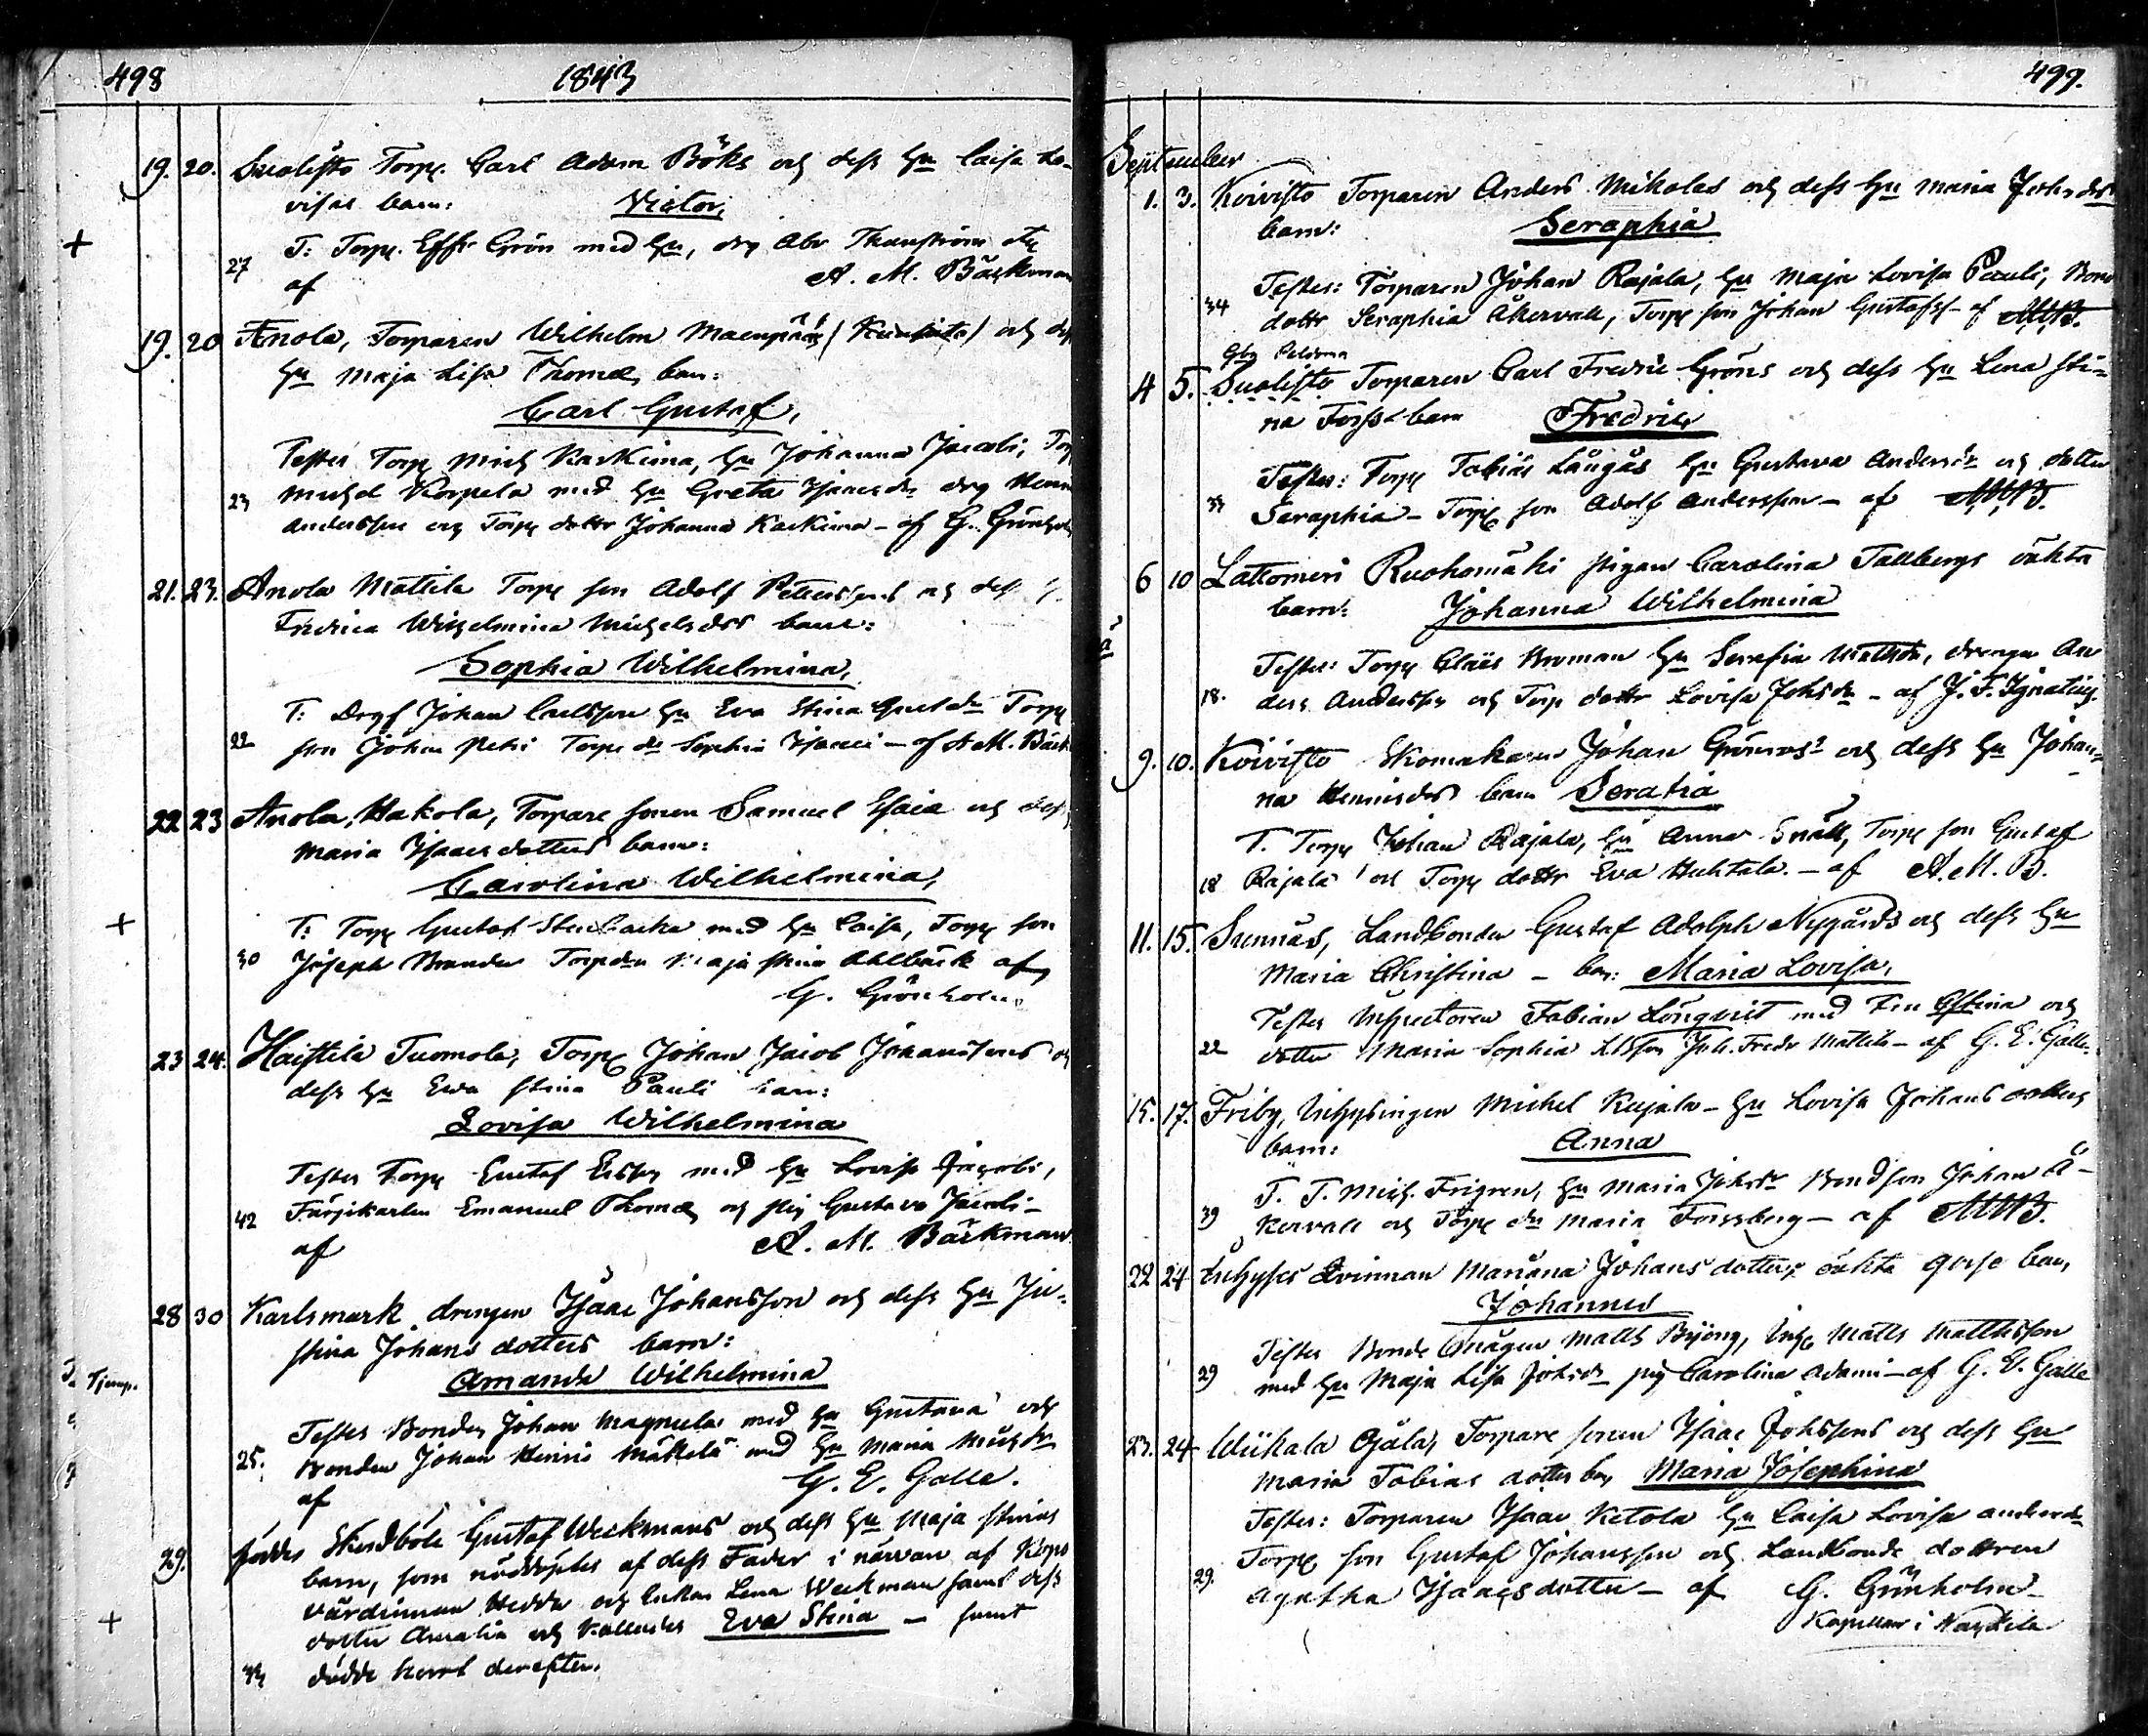 498 1843
19. 20. Suolisto Torp. Carl Adam Böks och dess hu Caisa Lo-
visas barn: Victor,
T: Torp. Grön med hu, drg Abr Thunström
27 af A. M. Bäckman
19. 20 Anola, Torparen Wilhelm Maenpää (Kurkiata) och
hu Maja Lisa Thomæ, barn:
Carl Gustaf,
Testes Torp Mich Karkima, hu Johanna Jacobi,
23 Michel Korpela med hu Greta Isaacsdr drg
Andersson och Torp dottr Johanna Karkima - af G. Grönholm
21. 23. Anola Mattila Torp son Adolf Petterssons och dess
Fredrica Wilhelmina Michelsdrs barn:
Sophia Wilhelmina,
T: Johan Carlsson hu Eva Stina Gustdr Torp
22 son Johan Petri Torp dr Sophia Isaaci - af A M. Bäck
22 23 Anola, Hakola, Torpare sonen Samuel Esaiæ och
Maria Isaacsdotters barn:
Carolina Wilhelmina,
T: Torp Gustaf Stenbacka med hu Caisa, Torp son
30 Joseph Brander Torpdr Maja Stina Ahlbäck af
G. Grönholm
23 24. Haistila Tuomola, Torp Johan Jacob Johanssons och
dess hu Ewa Stina Pauli barn:
Lovisa Wilhelmina
Testes Torp Gustaf med hu Lovisa Jacobi,
42 Färjkarlen Emanuel Thomæ och pig Gustava Jacobi -
af A. M. Bäckman
28 30 Karlsmark drengen Isaac Johansson och dess hu Ju-
stina Johans dotters barn:
Amanda Wilhelmina
Testes Bonden Johan Magnula med hu Gustava och
25. Bonden Johan Henric Mäkkelä med hu Maria Michdr
af G. E. Galle.
29. föddes Skedböle Gustaf Weckmans och dess hu Maja Stinas
barn, som nöddöptes af dess Fader i närvaro af
värdinnan Hedda och Enkan Lena Weckman samt dess
dotter Amalia och kallades Eva Stina - samt
dödde kort derefter.
499.
September
1. 3. Koivisto Torparen Anders Mikolas och dess hu Maria Johsdrs
barn: Seraphia
Testes: Torparen Johan Rajala, hu Maja Lovisa Pauli, Bond
34 dottr Seraphia Åkervall, Torp son Johan Gustafss - af AMB.
4 5. Suolisto Torparen Carl Fredric Gröns och dess hu Lena Sti-
na Forss barn Fredric
Testes: Torp Tobias Långås hu Gustava Andersdr och dotter
Seraphia - Torp son Adolf Andersson - af AMB.
6 10 Lattomeri Ruohomäki pigan Carolina Tallbergs oäkta
barn: Johanna Wilhelmina
Testes: Torp Claës Broman hu Serafia Mattsdr, drengen An
18. ders Andersson och Torp dottr Lovisa Johsdr - af J. F. Ignatius.
9. 10. Koivisto Skomakaren Johan Grönroos och dess hu Johan-
na Henricsdrs barn Serafia
T. Torp Johan Rajala, hu Anna Snäll, Torp son Gustaf
18 Rajala och Torp dottr Eva Huhtala. - af A. M. B.
11. 15. Sunnäs, Landbonden Gustaf Adolph Nygårds och dess hu
Maria Christina - barn: Maria Lovisa,
Testes Inspectoren Fabian Lönqvist med Fru och
22 dotter Maria Sophia Joh. Fredr Mattila - af G. E. Galle.
15. 17. Friby, Inhysingen Michel Kujala - hu Lovisa Johans dotters
barn: Anna
T. T. Mich. Frigren, hu Maria Johsdr Bondson Johan Å-
39 kervall och Torp dr Maria Forssberg - af AMB.
22 24 Inhyses Qvinnan Mariana Johans dotters oäkta gosse barn
Johannes
Testes Bonde mågen Matts Björng, Inh Matts Mattsson
29 med hu Maja Lisa Johsdr pig Carolina Adami - af G. E. Galle
23. 24 Wiikala Ojala, Torpare sonen Isaac Johssons och dess hu
Maria Tobias dotters barn Maria Josephina
Testes: Torparen Isaac Ketola hu Caisa Lovisa Andersdr
Torp son Gustaf Johansson och Landbonde dottren
29. Agatha Isaacsdotter - af G. Grönholm
Kapellan i Nakkila